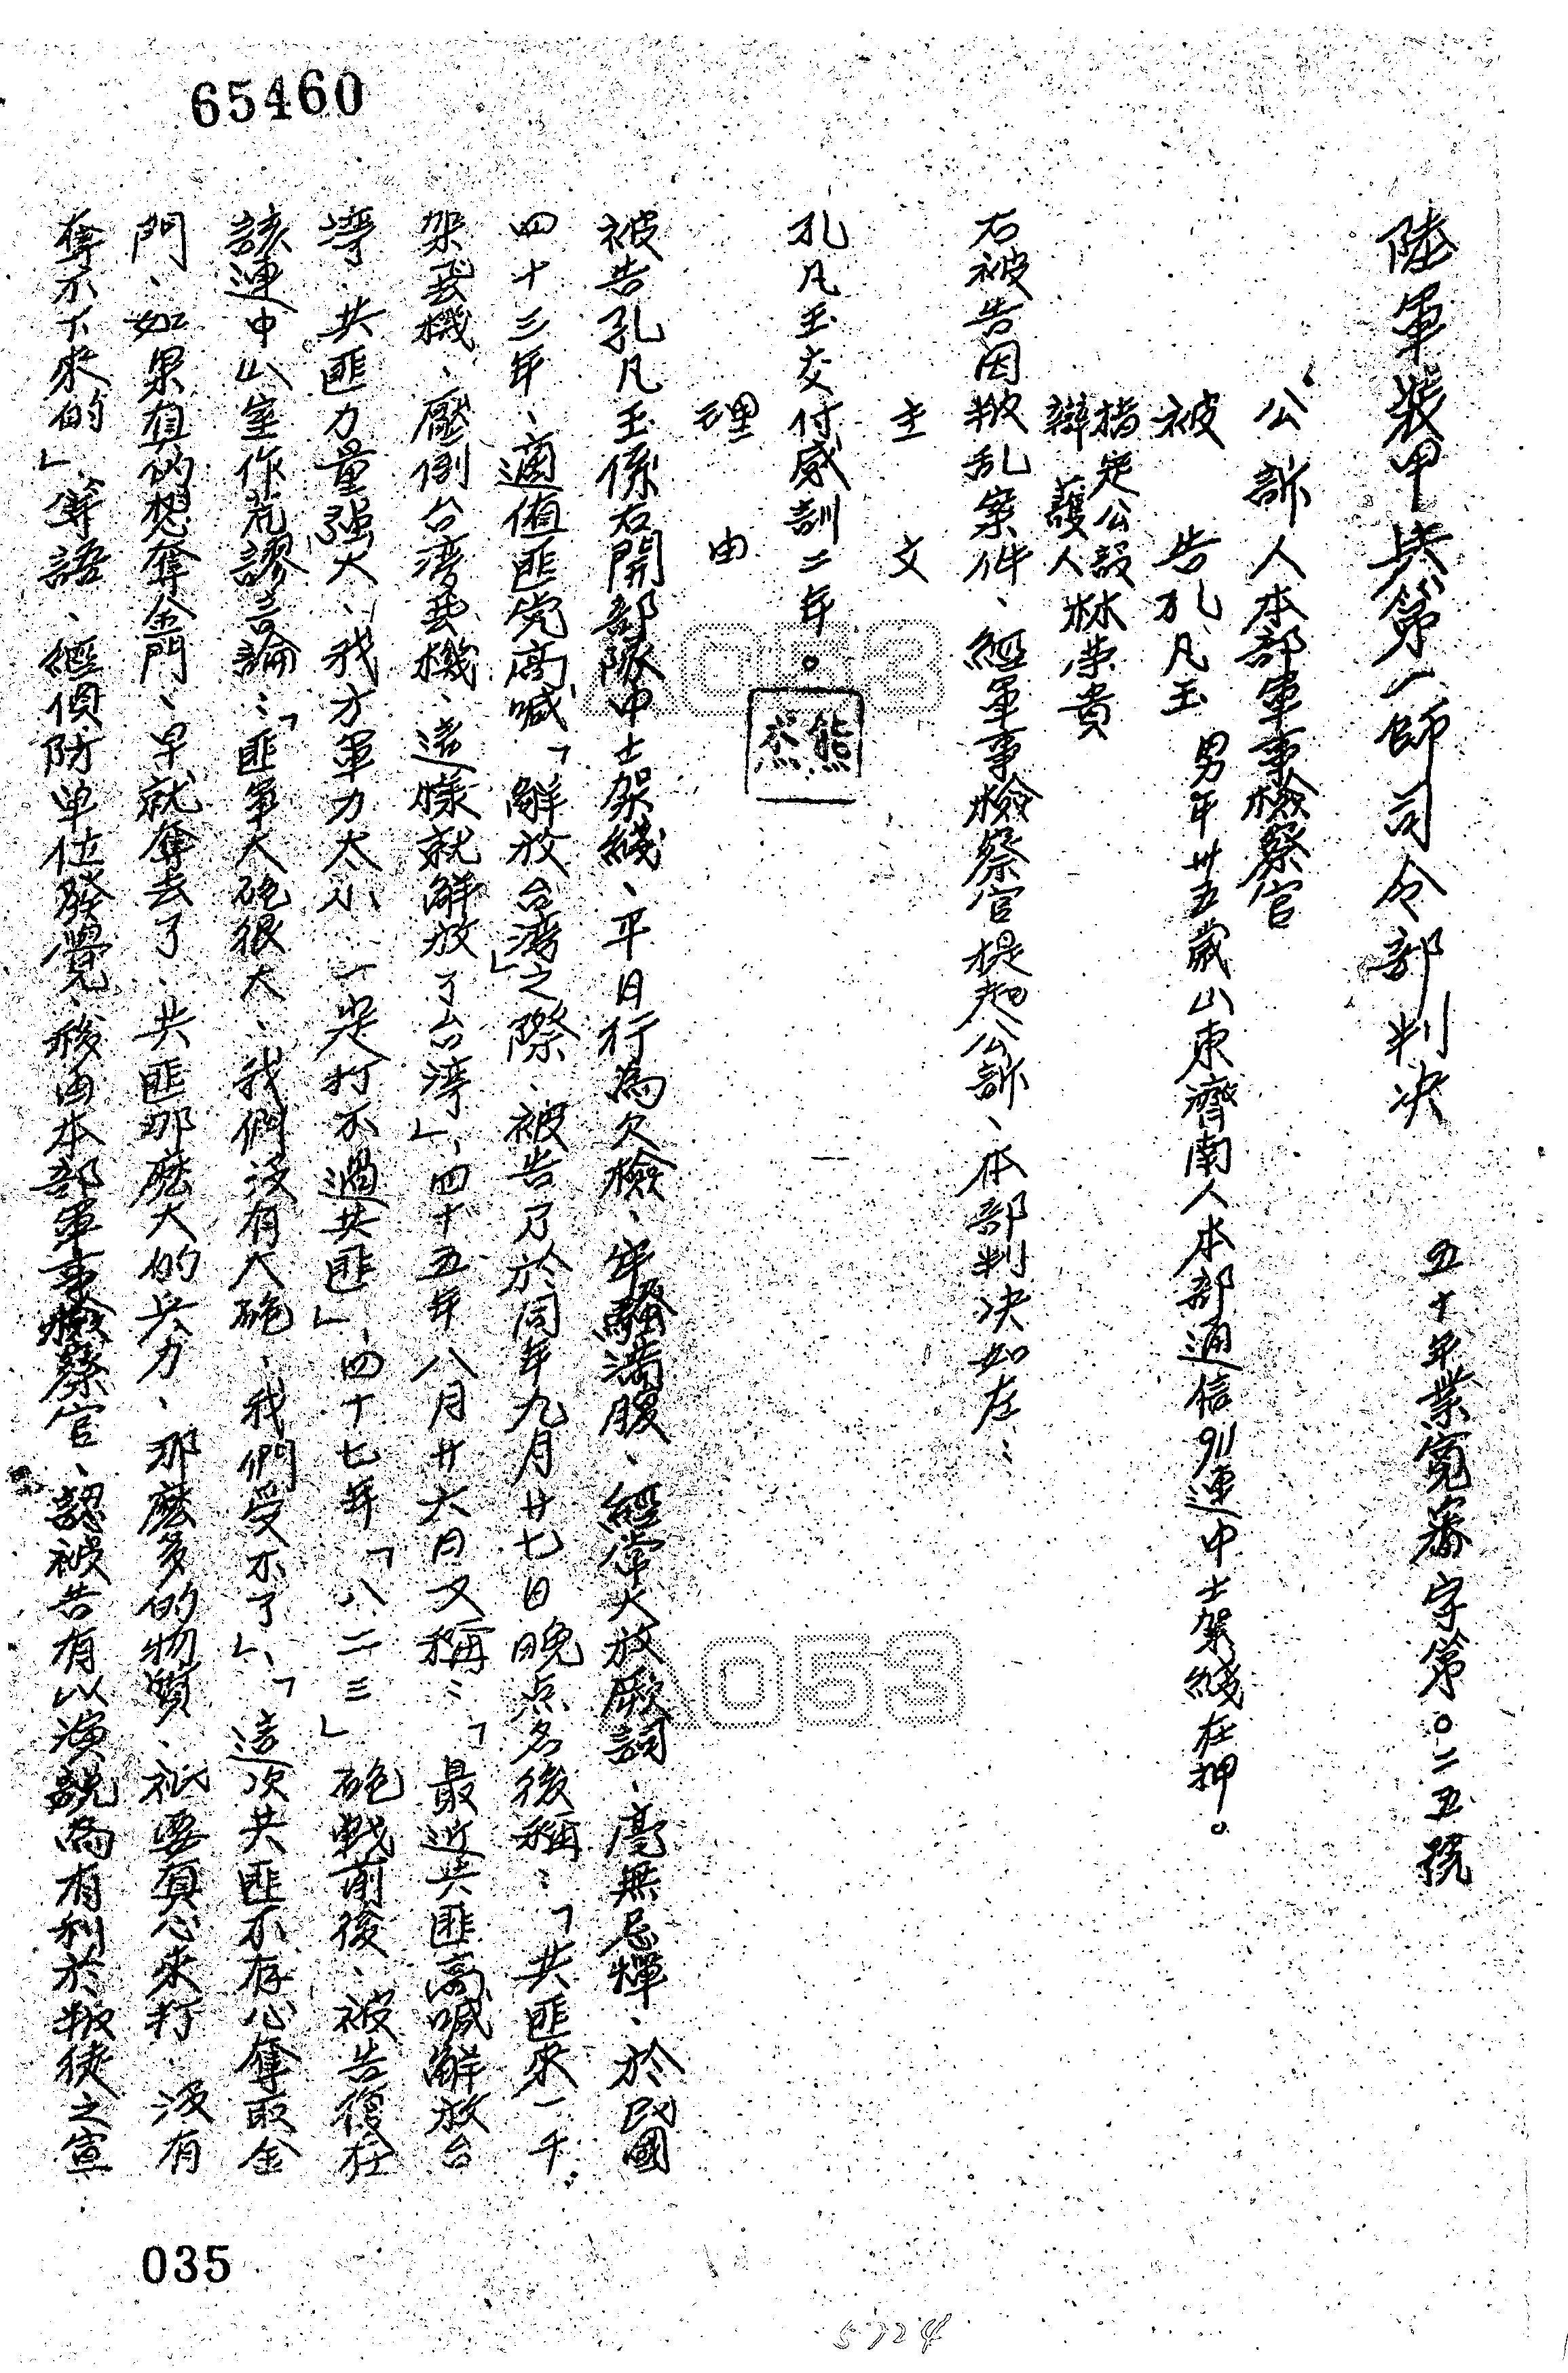 65460
陸軍裝甲兵第一師司令部判決
五十年業寬審字第〇二五號
公訴人本部軍事檢察官
被告孔凡玉 男年卅五歲山東濟南人本部通信911連中士架綫在押。
指定公設
辯護人林荣貴
右被告因叛乱案件、經軍事檢察官提起公訴、本部判决如左：
主文
孔凡玉交付感訓二年。
理由
被告孔凡玉係右開部隊中士架綫、平日行為欠檢、牢騷滿腹、經常大放厥詞、毫無忌憚、於民國
四十三年、適值匪党高喊「解放台湾」之際、被告乃於同年九月廿七日晚点名後稱：「共匪來一千
架飛機、壓倒台湾飛機、這樣就解放了台湾」、四十五年八月廿六日又稱：「最近共匪高喊解放台
湾、共匪力量强大、我方軍力太小、一定打不過共匪」、四十七年「八二三」砲戰前後、被告復在
該連中山室作荒謬言論：「匪軍大砲很大、我們没有大砲、我們受不了」、「這次共匪不存心奪取金
門、如果真的想奪金門、早就奪去了、共匪那麽大的兵力、那麽多的物質、祇要真心來打、没有
奪不下來的」等語、經偵防单位發覺、移由本部軍事檢察官、認被告有以演說為有利於叛徒之宣
熊
A053
A053
035
5724